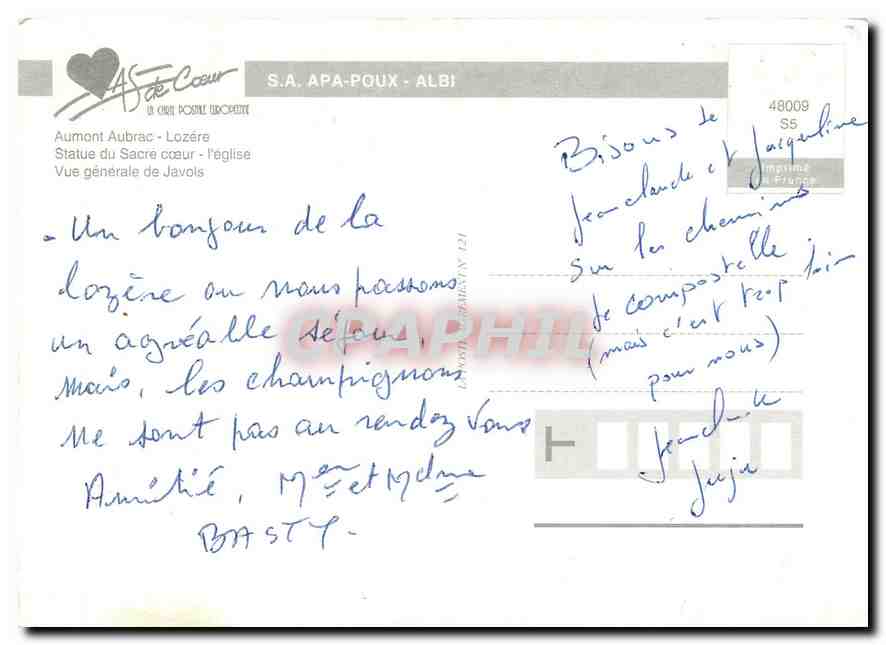 AS de Cœur
LA CARTE POSTALE EUROPEENNE
S.A. APA-POUX - ALBI
Aumont Aubrac - Lozére
Statue du Sacre cœur - l'église
Vue générale de Javols
48009
S5
Imprimé
en France
- Un bonjour de la
lozère ou nous passons
un agréable séjour,
mais, les champignons
ne sont pas au rendez vous
Amitié, Mer et Mdme
BASTY -
LA POSTE AGRÉMENT N° 121
Bisous de
jeanclaude et jacqueline
sur les chemins
de compostelle
(mais c'est trop loin
pour nous)
jeanclaude
juju
CPAPHIL